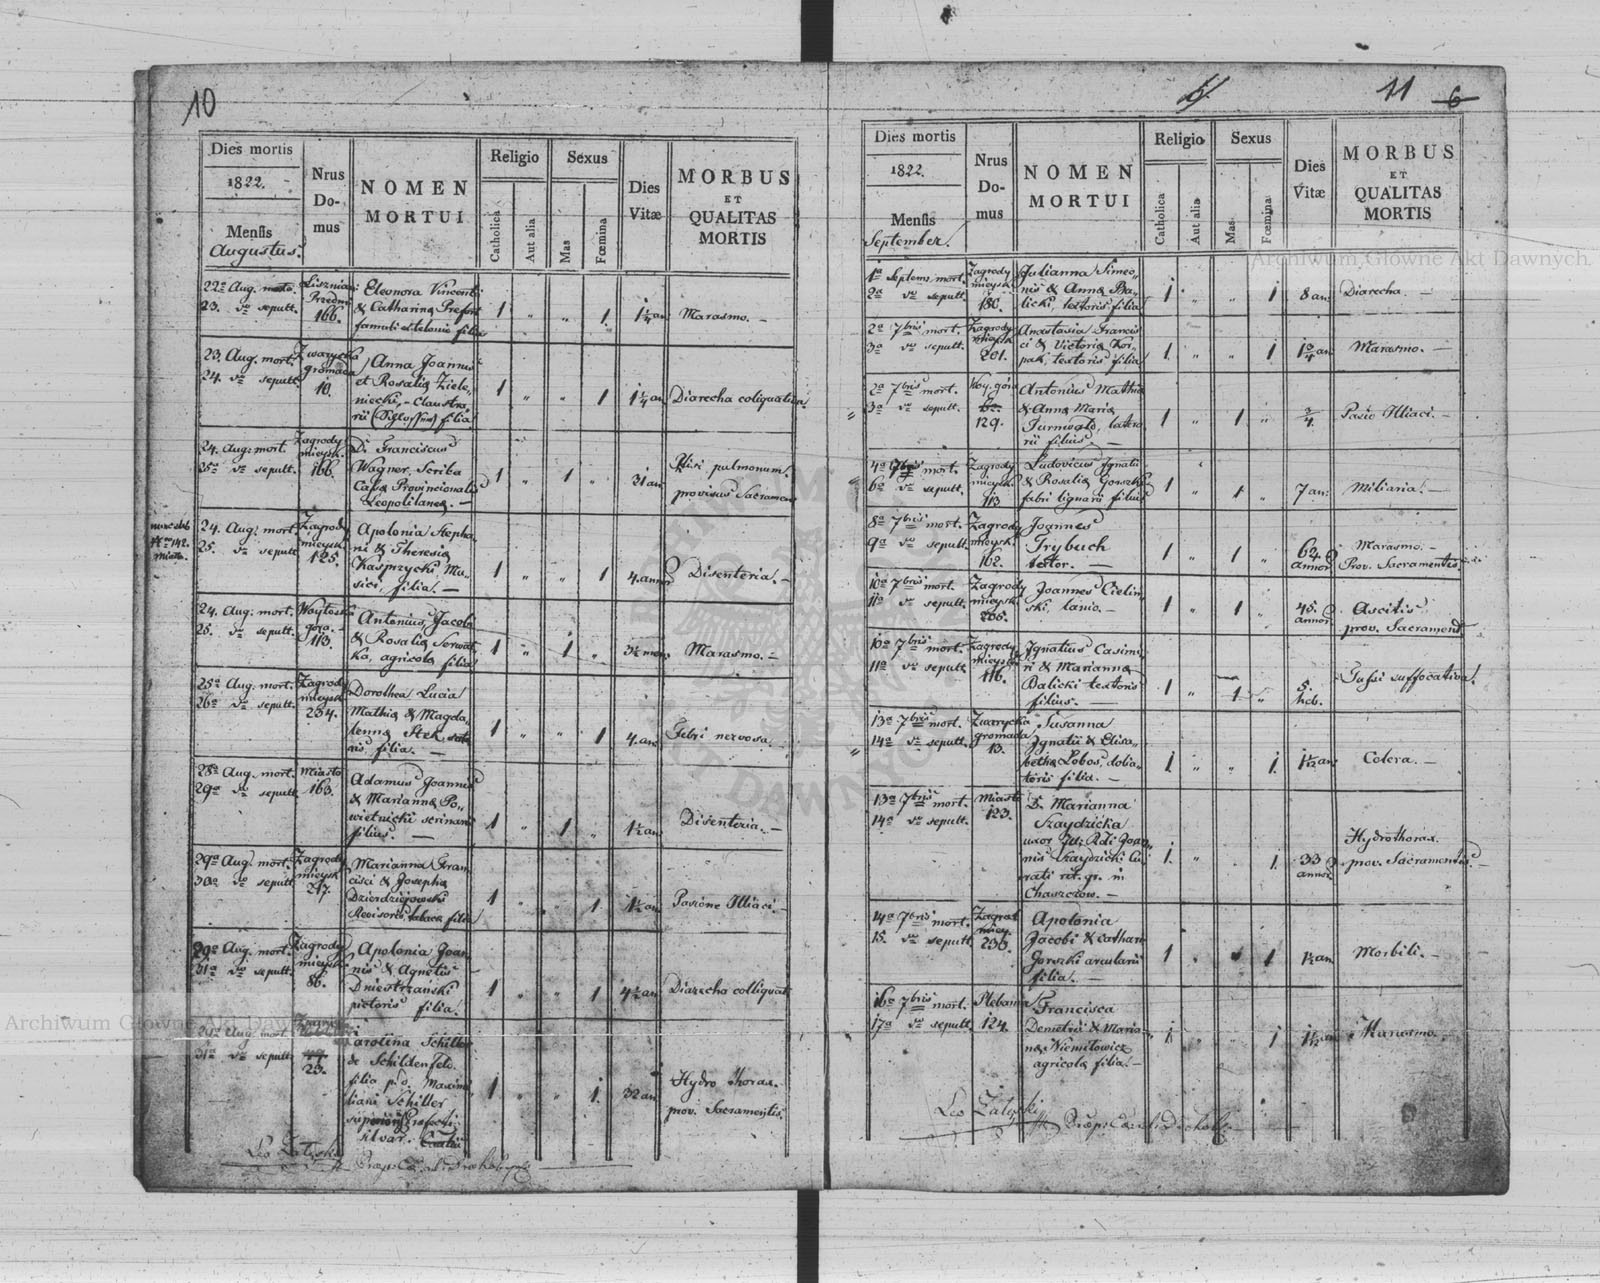 10
Dies mortis
1822.
Mensis
Augustus.
Nrus
Do-
mus
NOMEN
MORTUI
Religio
Catholica
Aut alia
Sexus
Mas
Fœmina
Dies
Vitæ
MORBUS
ET
QUALITAS
MORTIS
22a Aug.
23. do sepult.
166.
Eleonora Vincenti
& Catharina
famuli filia
1 " " 1
1¼ an
Marasmo. -
23. Aug. mort.
24. do sepult.
Zwarycka
gromada
10.
Anna Joannis
et Rosalia Ziele-
niecki,
filia
1 " " 1
1¼ an
Diarecha coliquativa.
24. Aug: mort.
25a do sepult.
Zagrody
mieysk.
166.
D. Franciscus
Wagner, Scriba
Provincionalis
Leopolitanea. -
1 " 1 "
31 an
pulmonum.
provisus Sacramen
24. Aug. mort.
25. do sepult.
Zagrody
mieysk.
125.
No 142.
miasto.
Apolonia Stepha-
ni & Theresia
Kasprzycki Mu-
sici, filia. -
1 " " 1
4. annor
Disenteria. -
24. Aug. mort.
25. do sepult.
Woytoska
gora. -
113.
Antonius, Jacobi
& Rosalia Serwat-
ka, agricola filius
1 " 1 "
3½ mens
Marasmo. -
25a Aug. mort.
26a do sepult.
Zagrody
mieysk
234.
Dorothea Lucia
Mathia & Magda-
lenna
filia. -
1 " " 1
4. an
Febri nervosa.
28a Aug. mort.
29a do sepult.
Miasto
163.
Adamus Joannis
& Marianna Po-
wietnicki
filius. -
1 " 1 "
1½ an
Disenteria. -
29a Aug. mort.
30a do sepult.
Zagrody
mieysk
217.
Marianna Fran-
cisci & Josepha
Dzierdziejowski
Revisoris tabaca filia
1 " " 1
1½ an
Pasione Illiaci. -
30a Aug. mort.
31a do sepult.
Zagrody
mieysk.
86.
Apolonia Joan-
nis & Agnetis
Dniestrzański
pictoris filia.
1 " " 1
4½ an
Diarecha colliquat.
Aug. mort.
31a do sepult.
23.
Carolina Schiller
de Schildenfeld.
filia p. d. Maxim-
liani Schiller
silvar.
1 " " 1.
32 an
Hydro thorax.
prov. Sacramentis.
Leo Załęski
11 6
Dies mortis
1822.
Mensis
September.
Nrus
Do-
mus
NOMEN
MORTUI
Religio
Catholica
Aut alia
Sexus
Mas.
Fœmina
Dies
Vitæ
MORBUS
ET
QUALITAS
MORTIS
1a Septem. mort.
2a do sepult.
Zagrody
mieysk
180.
Julianna Simeo-
nis & Anna Ba-
licki, textoris filia
1 " " 1
8 an:
Diarecha. -
2a 7bris mort.
3a do sepult.
Zagrody
mieysk
201.
Anastasia Francis-
ci & Victoria Kor-
pak, textoris filia
1 " " 1
an
Marasmo. -
2a 7bris mort.
3a do sepult.
Woy. góra
129.
Antonius Mathia
& Anna Maria
filius. -
1 " 1 "
Pasio Illiaci. -
4a 7bris mort.
6a do sepult.
Zagrody
mieysk
113
Ludovicus Ignatii
& Rosalia Gorszki
fabri lignarii filius
1 " 1 "
7 an:
Miliaria. -
8a 7bris mort.
9a do sepult.
Zagrody
mieysk.
162.
Joannes
Trybuch
textor. -
1 " 1 "
62
annor
Marasmo. -
Prov. Sacramentis
10a 7bris mort.
11a do sepult.
Zagrody
mieysk.
Joannes Cielin-
ski, lanio. -
1 " 1 "
45.
annor
Ascitis.
prov. Sacrament.
10a 7bris mort.
11a do sepult.
Zagrody
mieysk
116.
Ignatius Casimi-
ri & Marianna
Balicki textoris
filius. -
1 " 1 "
5.
heb.
Tussi suffocativa.
13a 7bris mort.
14a do sepult.
Zwarycka
gromada
13.
Susanna
Ignatii & Elisa-
betha Lobos, dolia-
toris filia. -
1 " " 1.
an
Colera. -
13a 7bris mort.
14a do sepult.
Miasto
123.
D. Marianna
Szaydzicka
uxor Joan-
nis Szaydzicki Cu-
rati rit. gr. in
Chaszczow. -
1 " " 1.
33
annor
Hydrothorax.
prov. Sacramentis.
14a 7bris mort.
15. do sepult.
Zagrod
miey.
236.
Apolonia
Jacobi & Cathari
Gorszki arcularii
filia. -
1 " 1
1½ an
Morbili. -
16a 7bris mort.
17a do sepult.
Plebania
124.
Francisca
Demetrii & Maria-
na Niemilowicz
agricola filia. -
1 " " 1
an
Marasmo.
Leo Załęski
Archiwum Główne Akt Dawnych.
Archiwum Główne Akt Dawnych